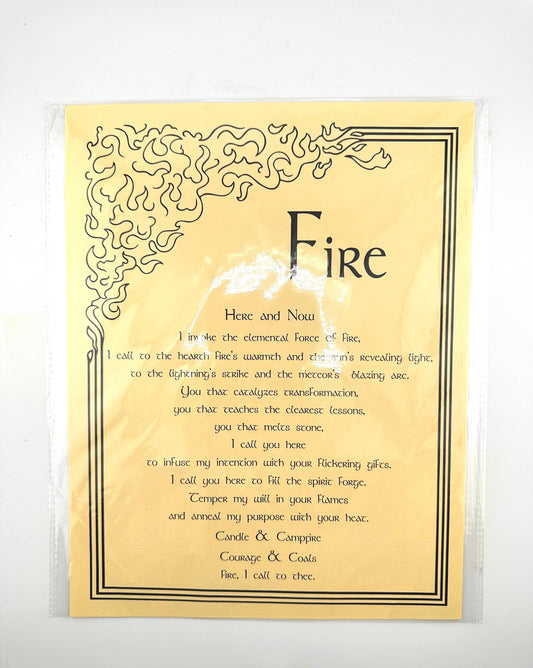 Fire
Here and Now
I invoke the elemental force of fire,
I call to the hearth fire's warmth and the sun's revealing light,
to the lightning's strike and the meteor's blazing arc.
You that catalyzes transformation,
you that teaches the clearest lessons,
you that melts stone,
I call you here
to infuse my intention with your flickering gifts.
I call you here to fill the spirit forge.
Temper my will in your flames
and anneal my purpose with your heat.
Candle & Campfire
Courage & Coals
Fire, I call to thee.